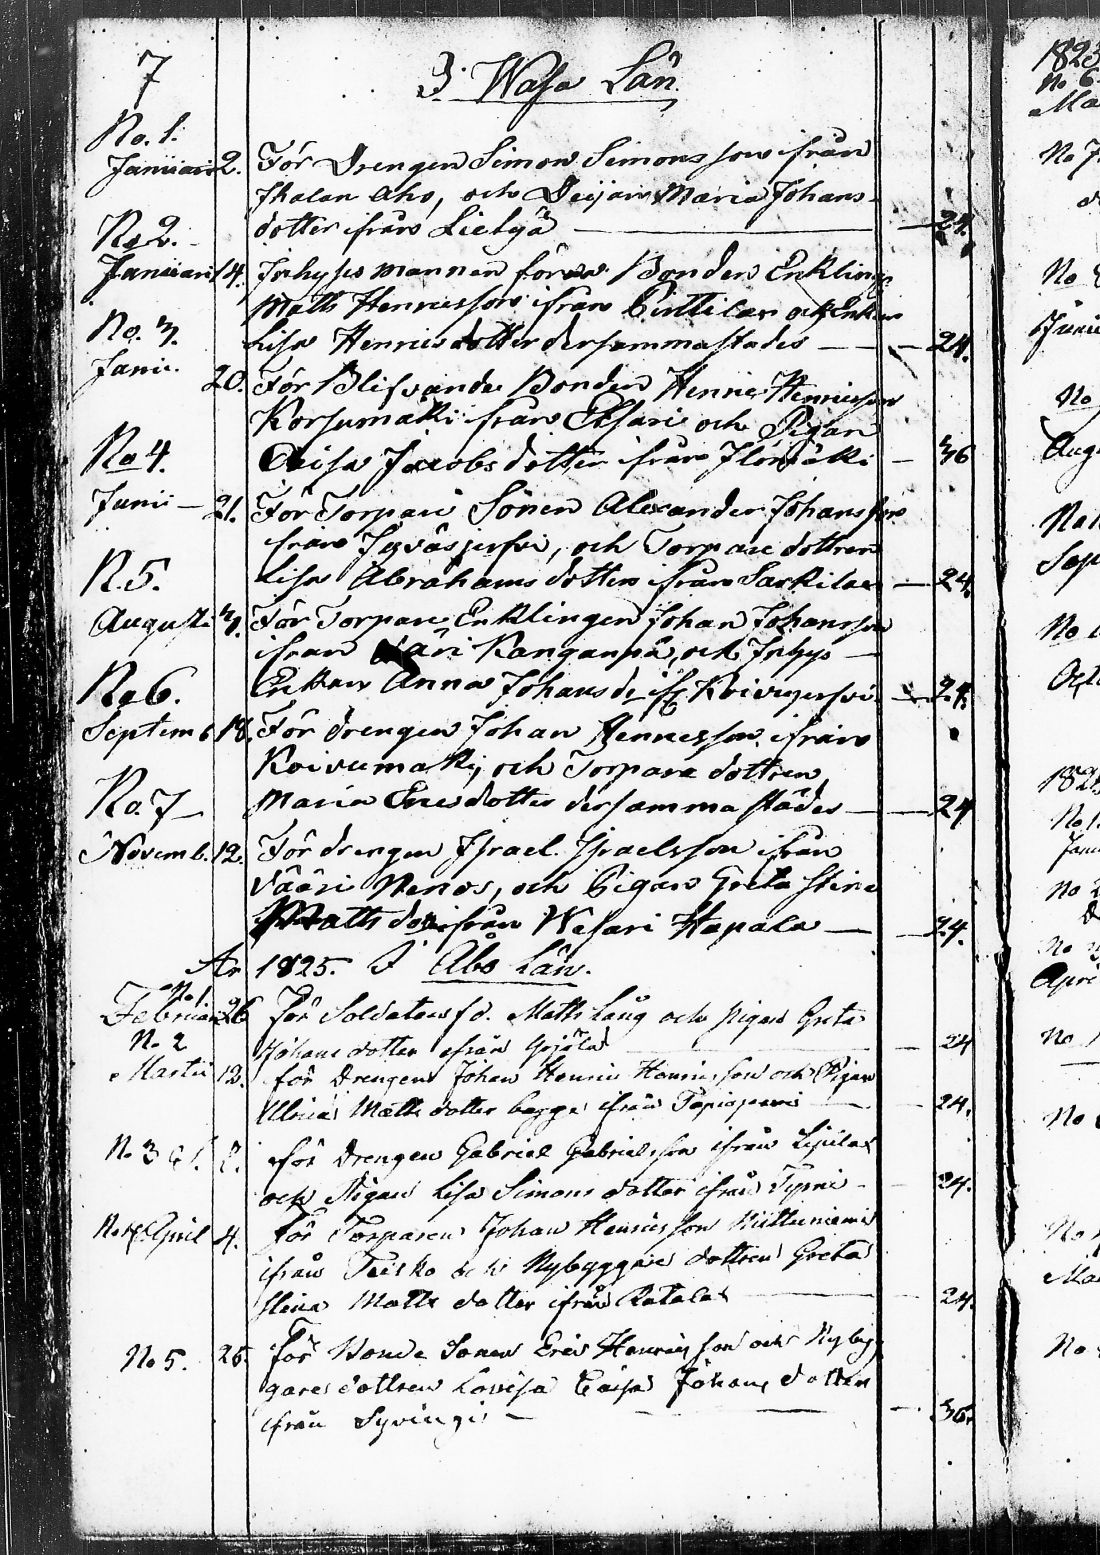 7
I Wasa Län.
No. 1.
Januari 2. För Drengen Simon Simons son ifrån
Skalan Aho, och Peijan Maria Johans-
dotter ifrån Lielyä — 24.
No 2.
Januari 14. Inhyses mannen för Bonden Enkling
Matts Henricsson ifrån Puttilan och Enkan
Lisa Henrics dotter dersammastades — 24.
No. 3.
Janu. 20. För Blifvande Bonden Henric Henricsson
Korsumäki ifrån och Pigan
Caisa Jacobs dotter ifrån — 36
No 4.
Junii — 21. För Torpare Sönen Alexander Johansson
ifrån och Torpare dottren
Lisa Abrahams dotter ifrån Sarkilax — 24.
N. 5.
Augusti 3. För Torpare Enklingen Johan Johansson
ifrån Kanganpä, och Inhys
Enkan Anna Johans d. ifr Koivujerfvi — 24.
No 6.
Septemb 18. För drengen Johan Henricsson ifrån
Koivumäki, och Torpare dottren,
Maria Ericsdotter dersamma städes — 24
No. 7
Novemb. 12. För drengen Israel Israelsson ifrån
Vääri Nenos, och Pigan Greta Stina
Matts do ifrån Wesari Hapala — 24.
År 1825. I Åbo Län.
No 1.
Februari 26 För Soldaten f d. Matts Lång och pigan Greta
Johans dotter ifrån — 24
No 2
Martii 12. för Drengen Johan Henric Henricsson och Pigan
Ulrica Matts dotter begge ifrån — 24.
No 3 2. för Drengen Gabriel Gabrielsson ifrån
och Pigan Lisa Simons dotter ifrån — 24.
No 4 April 4. för Torparen Johan Henricsson
ifrån Teisko och Nybyggare dottren Greta
Stina Matts dotter ifrån Ratala — 24.
No 5. 25. för Bonde Sonen Eric Henricsson och Nybyg
gare dottren Lovisa Caisa Johans dotter
ifrån — 36.
No 6
No 1.
No 2